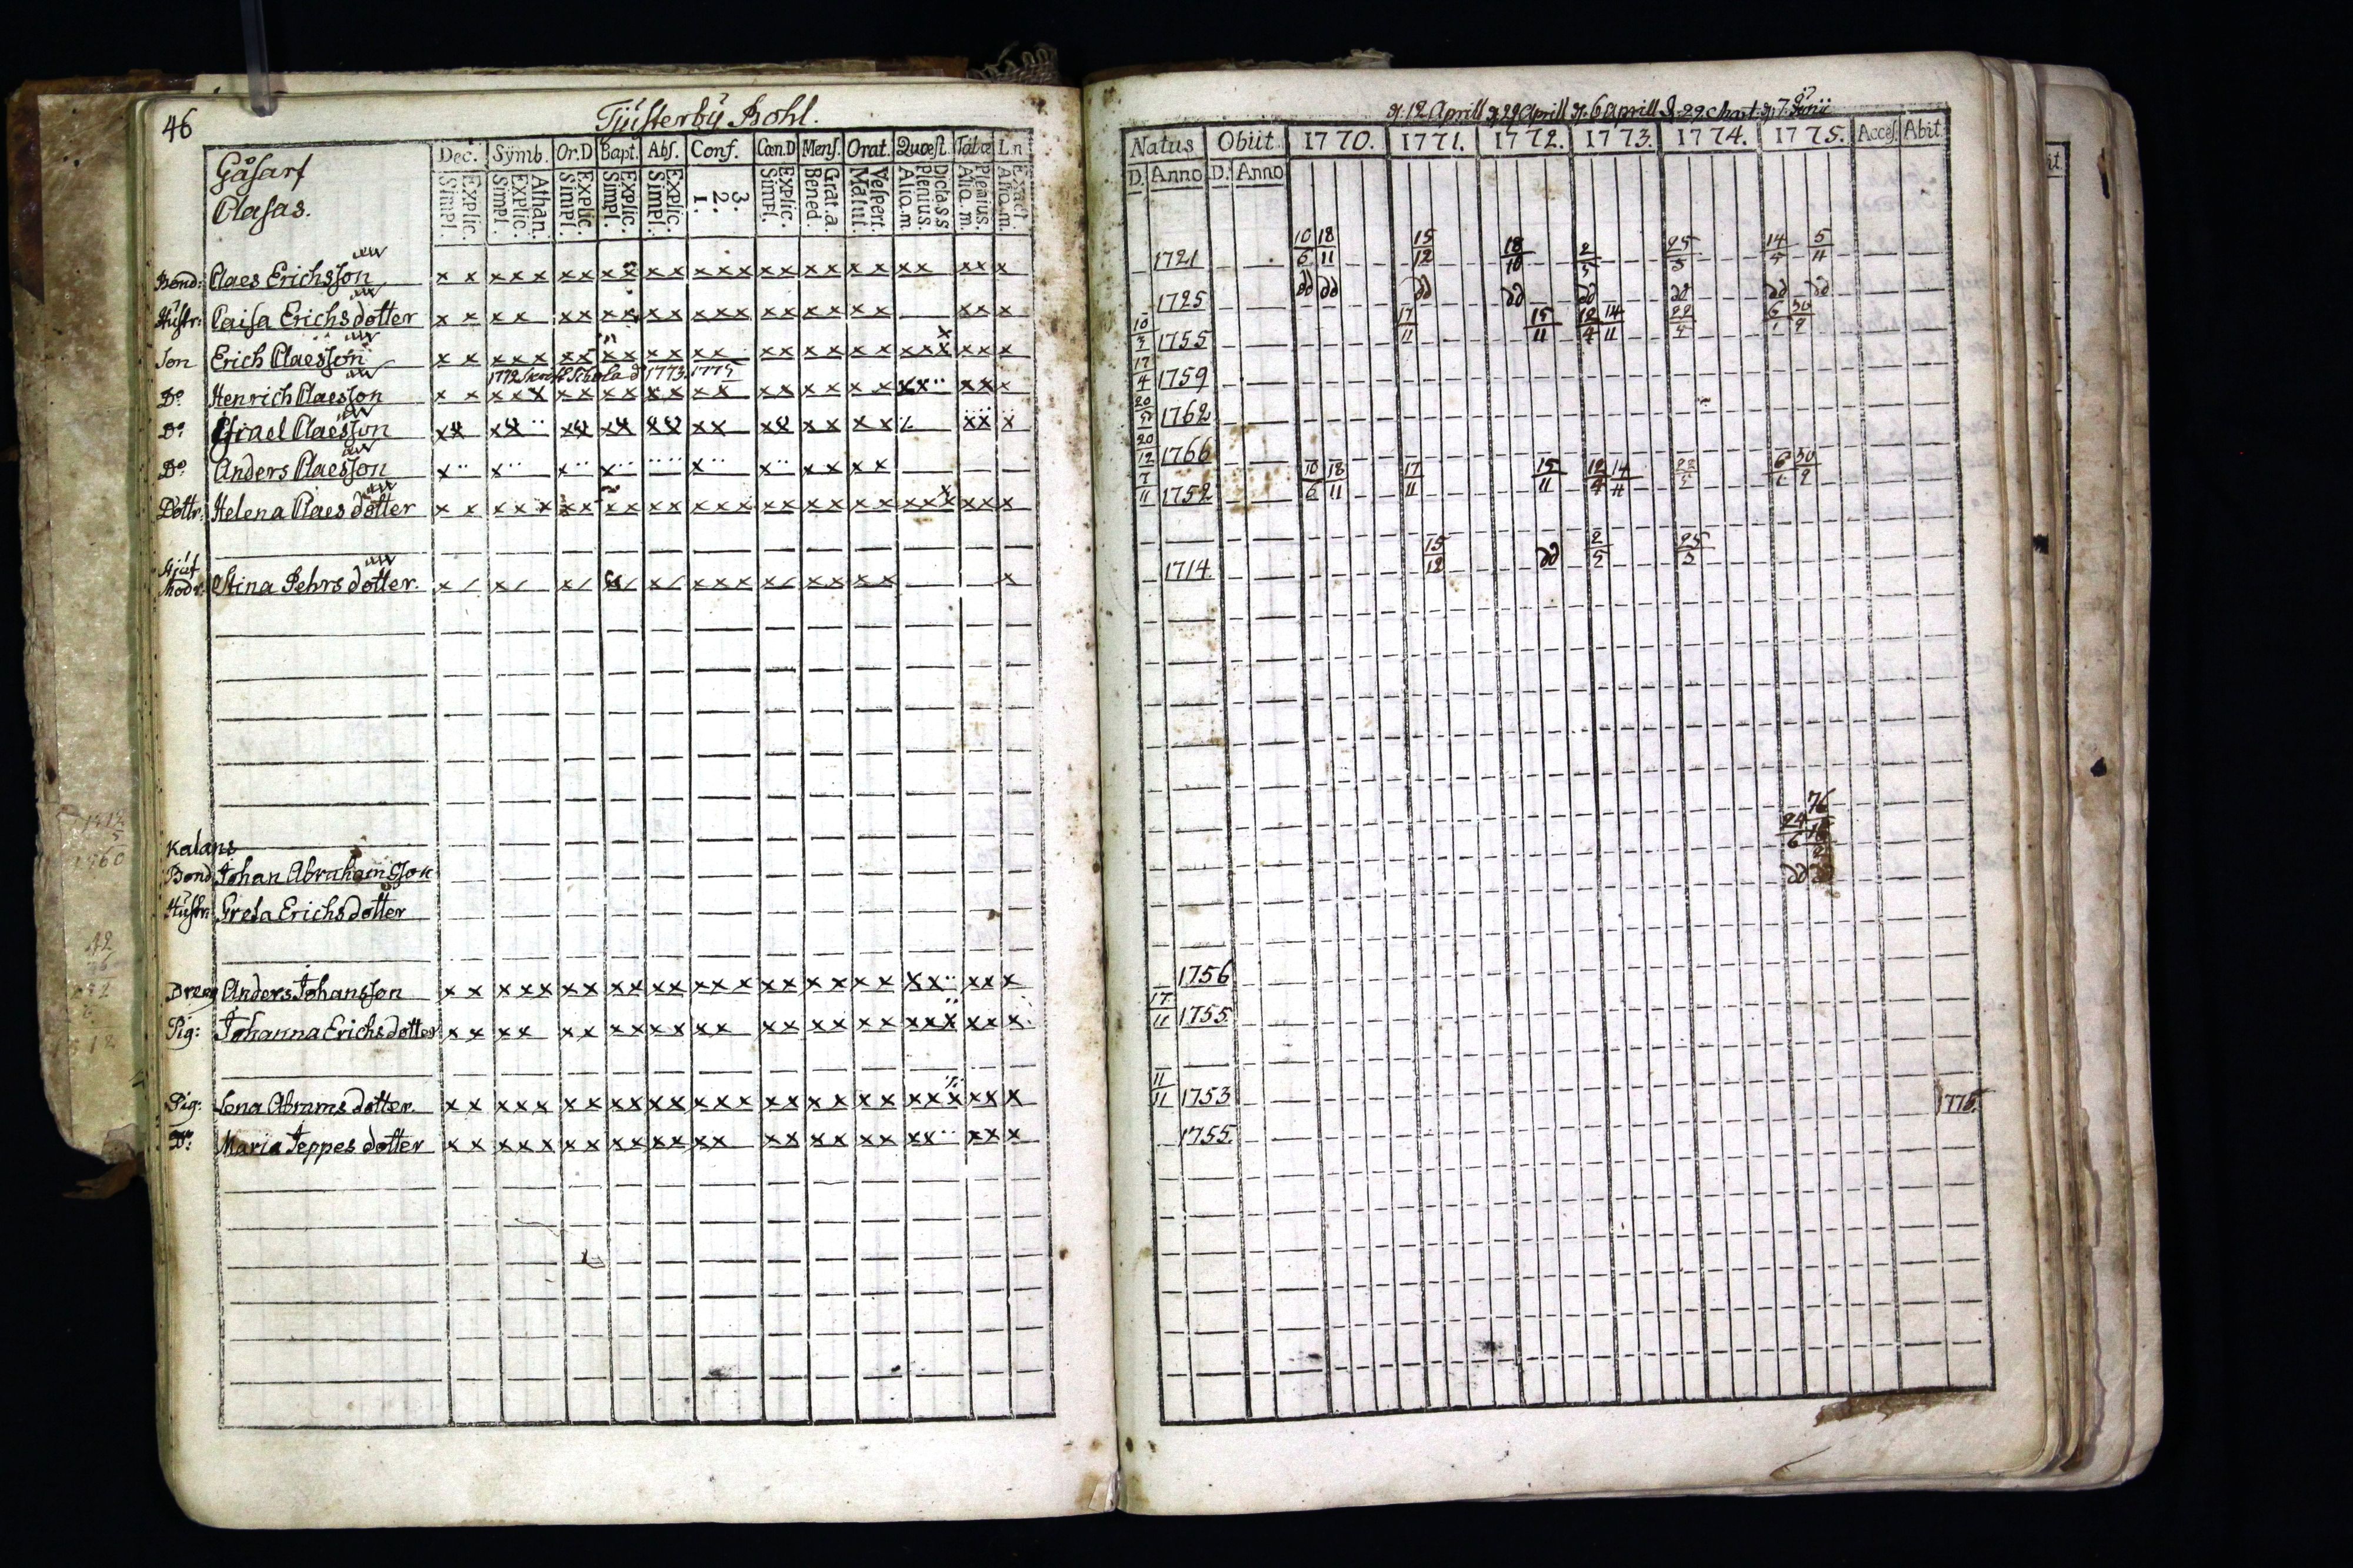 46
Tjüsterbÿ Bohl.
Gåsarf
Clasas.
Dec. Sÿmb. Or.D Bapt. Abs. Conf. Cœn.D Mens. Orat. Quæst. Tabæ Ln
Simpl. Explic. Simpl. Explic. Athan. Simpl. Explic. Simpl. Explic. Simpl. Explic. 1. 2. 3. Simpl. Explic. Bened. Grat.a. Matut. Vespert. Aliq.m. Plenius. Dicta.s.s Aliq.m. Plenius. Aliq.m. Exact
Bond: Claes Erichsson x x x x x x x x x x x x x x x x x x x x x x x x
Hustr: Caisa Erichsdotter x x x x x x x x x x x x x x x x x x x x x x x
Son Erich Claesson x x x x x x x x x x x x x x x x x x x x x x x x x
1773. 1775
Do Henrich Claesson x x x x x x x x x x x x x x x x x x x x x x x x
Do Israel Claesson
Do Anders Claesson
Dottr: Helena Claesdotter x x x x x x x x x x x x x x x x x x x x x x x x x x
Modr: Stina Pehrsdotter.
Kalans
Bond Johan Abrahamsson
Hustr: Greta Erichsdotter
Dreng Anders Johansson x x x x x x x x x x x x x x x x x x x x x x x x x
Pig: Johanna Erichsdotter x x x x x x x x x x x x x x x x x x x x x x x x
Pig: Lena Abramsdotter. x x x x x x x x x x x x x x x x x x x x x x x x x x
Do Maria Jeppesdotter x x x x x x x x x x x x x x x x x x x x x x x x
d. 12 Aprill d. 29 Aprill d. 6 Aprill d. 29 Mart. d. 7 Junii
Natus Obiit 1770. 1771. 1772. 1773. 1774. 1775. Acces. Abit.
D. Anno D. Anno
1721 10/6 18/11 15/12 18/10 2/5 25/3 14/5 5/11
1725 dd dd dd dd dd dd dd dd
10/3 1755 17/11 15/11 12/4 14/11 22/5 6/1 30/9
17/4 1759
20/5 1762
20/12 1766
7/11 1752 10/6 18/11 17/11 15/11 12/4 14/11 22/5 6/1 30/9
1714. 15/12 dd 2/5 25/3
76
24/6
dd dd
1756
17/11 1755
11/11 1753 1775.
1755.